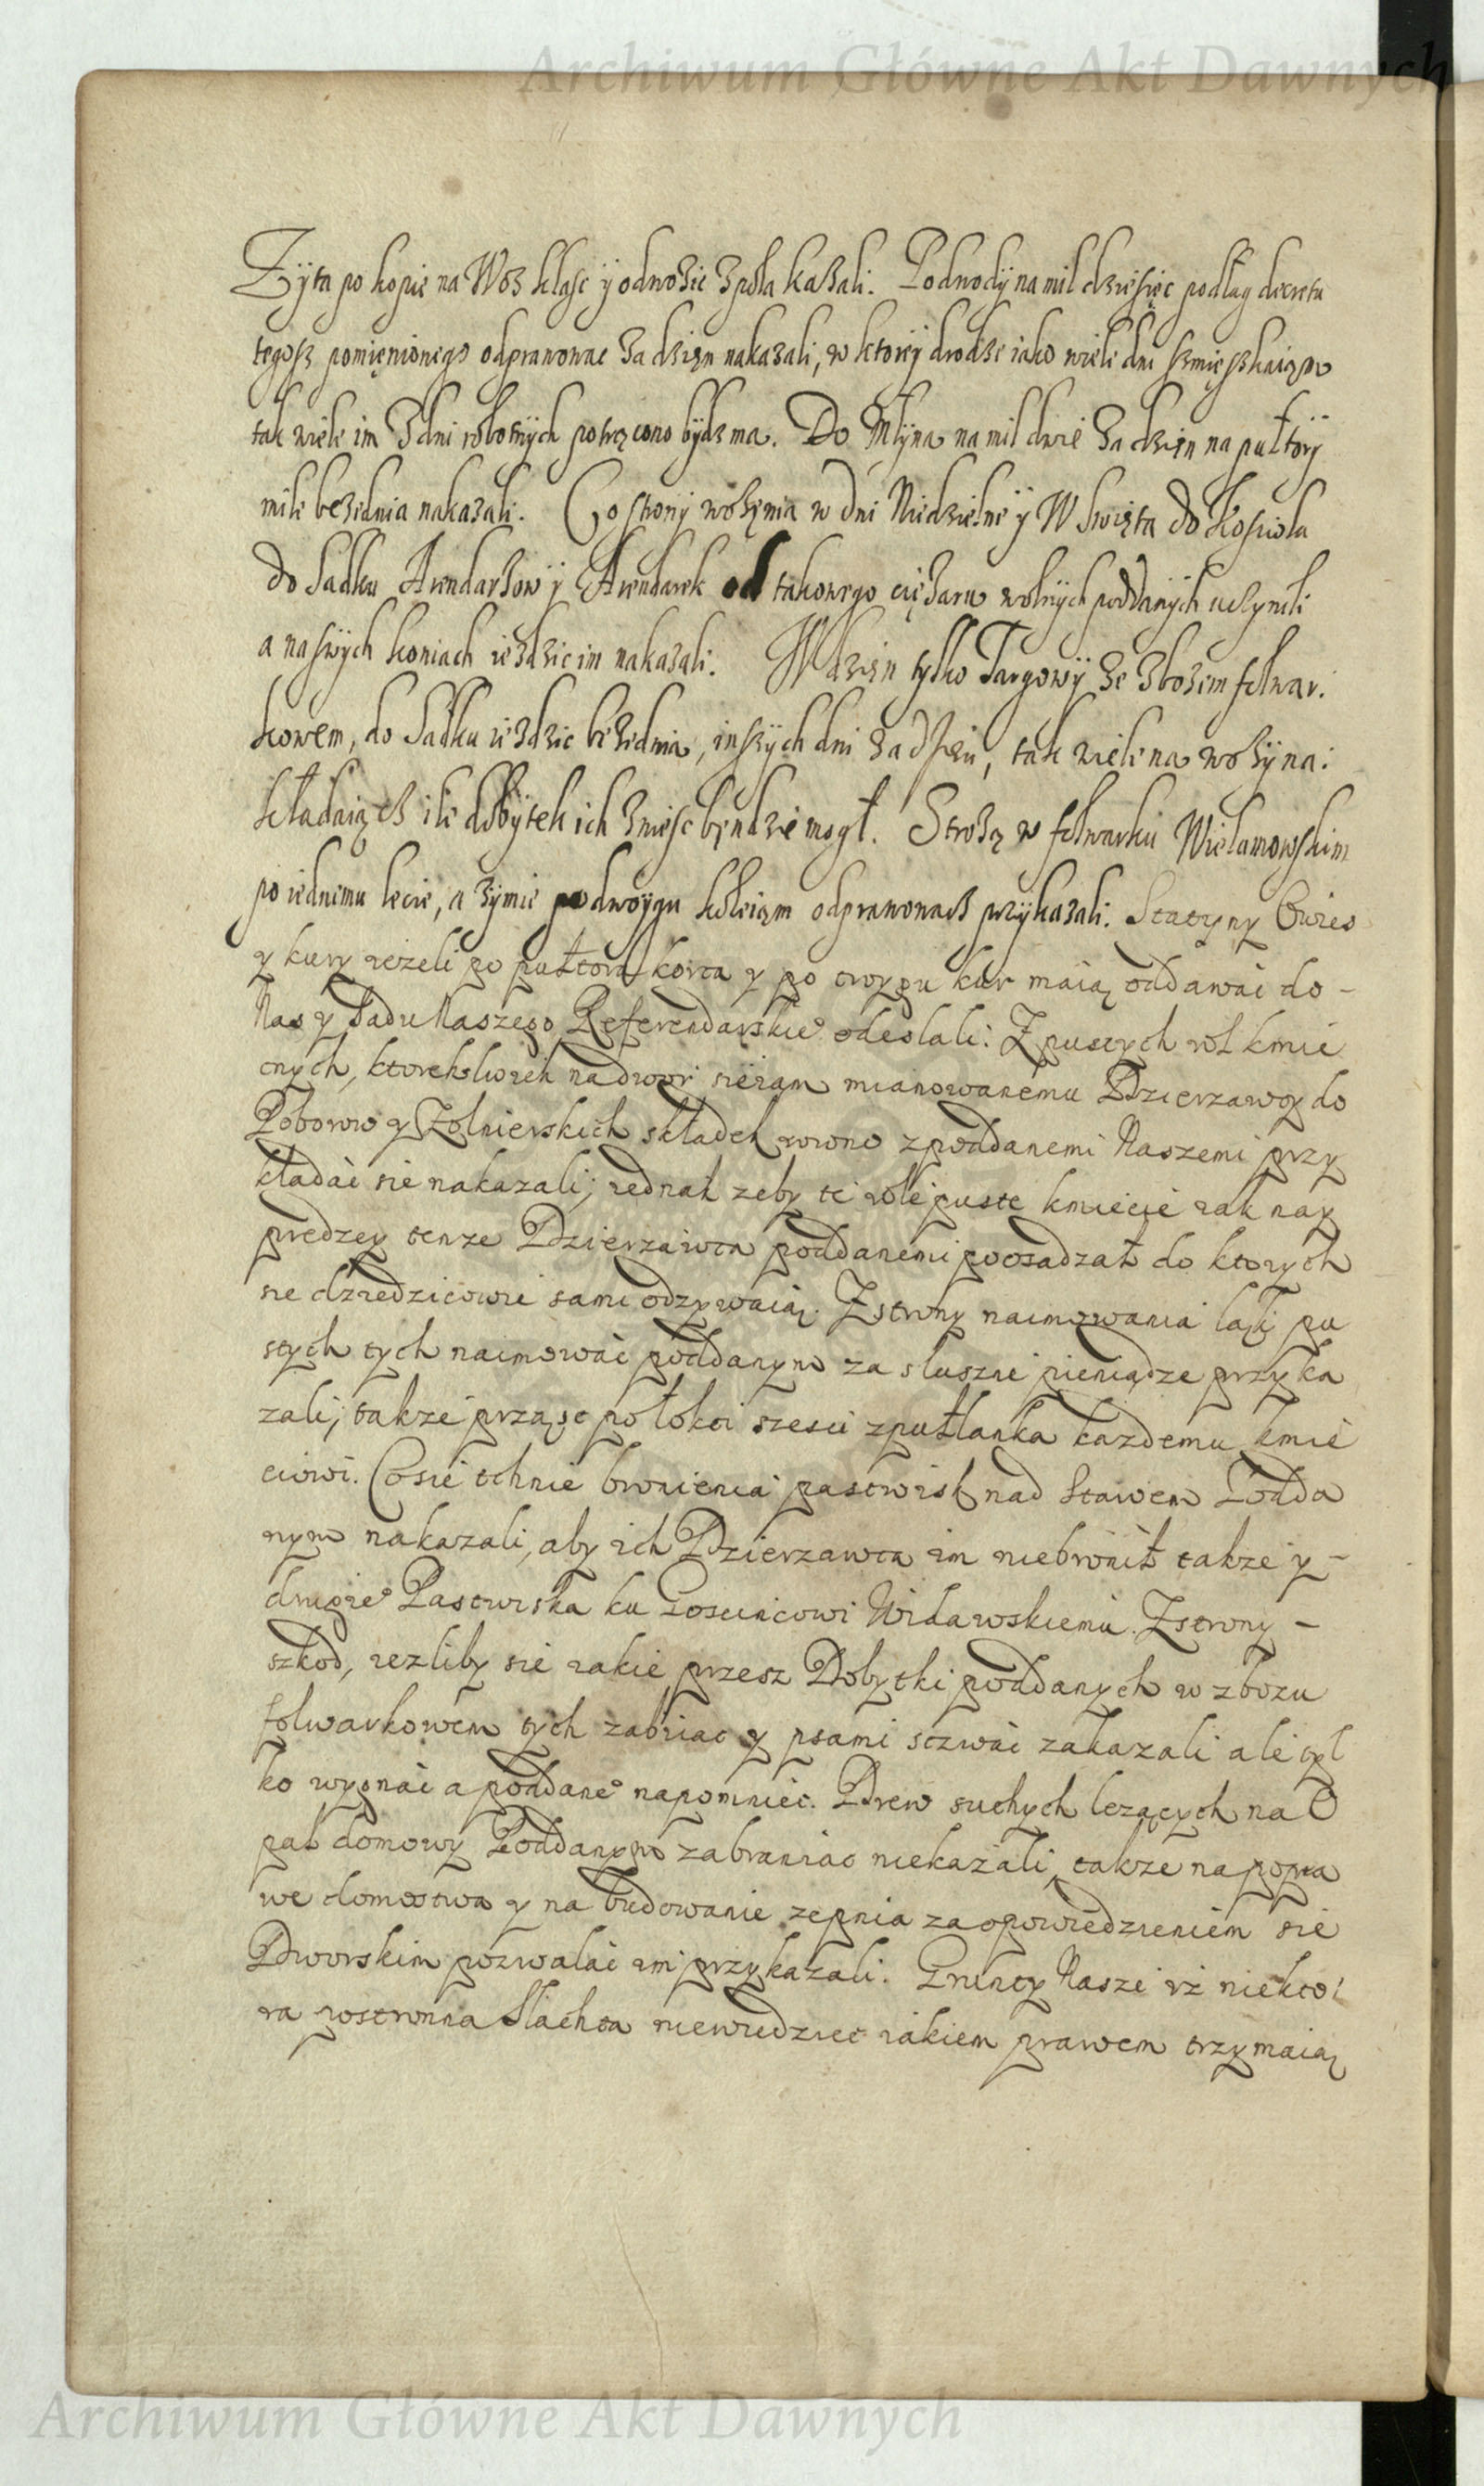 Archiwum Główne Akt Dawnych
Zyta po kopie na Woz kłasc y odwozic zpola kazali. Podwody na mil dziesięc podług decretu
tegosz pomięnionego odprawowac za dzięn nakazali, w ktorey drodze iako wiele dni zmięszkaią
tak wiele im z dni robotnych potrącono bydz ma. Do Młyna na mil dwie za dzięn na pułtory
mile bezednia nakazali. Co strony wozęnia w dni Niedzielne y W Swięta do Kosciola
do Sadku Arendarzow y Arendarek od takowego ciężaru wolnych poddanych uczynili
a naswych koniach iezdzic im nakazali. W dzięn tylko Targowy ze zbozem folwar:
kowem, do Sadku iezdzic bezednia, inszych dni za dzięn, tak wiele na wozy na:
kładaiącz ile dobytek ich zniesc będzie mogł. Strozą w folwarku Wielamowskim
po iednemu lecie, a zymie po dwoygu koleiąm odprawowacz przykazali. Stacyny Owies
y kury iezeli po pułtora korca y po troygu kur maią oddawac do -
Nas y Sadu Naszego Referendarskie° odeslali: Z pustych rol kmie
cych, ktorekolwiek na dwor sieiam mianowanemu Dzierzawcy do
Poborow y Zolnierskich składek rowno z poddanemi Naszemi przy
kładac sie nakazali; iednak zeby te role puste kmiecie iak nay
predzey tenze Dzierzawca poddanemi poosadzał do ktorych
sie dziedzicowie sami odzywaią. Z strony naimowania łąk pu
stych tych naimowac poddanym za sluszne pieniądze przyka
zali; takze prząsc po łokci szesci z pułlanka kazdemu kmie
ciowi. Co sie tchnie bronienia pastwisk nad Stawem Podda
nym nakazali, aby ich Dzierzawca im niebronił takze y -
drugie° Pastwiska ku Goscincowi Widawskiemu. Z strony -
szkod, iezliby sie iakie przesz Dobytki poddanych w zbozu
folwarkowem tych zabiiac y psami sczwac zakazali ale tyl
ko wygnac a poddane° napomniec. Drew suchych lezących na O
pał domowy Poddanym zabraniac niekazali, takze na popra
we domostwa y na budowanie zepnia za opowiedzieniem sie
Dworskim pozwalac im przykazali. Grunty Nasze iz niekto:
ra postronna Slachta niewiedziec iakiem prawem trzymaią
Archiwum Główne Akt Dawnych